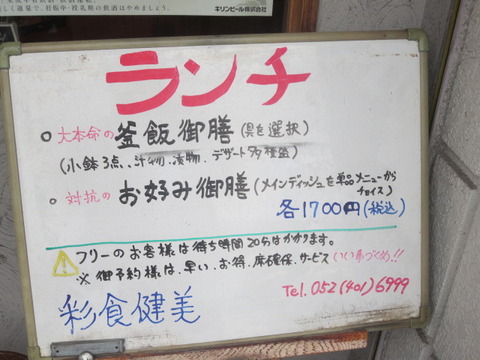 しく適量で。妊娠中・授乳期の飲酒はやめましょう。
キリンビール株式会社
ランチ
○ 大本命の 釜飯御膳(具を選択)
(小鉢3点、汁物、漬物、デザート多種盛)
○ 対抗の お好み御膳(メインディッシュを単品メニューから
チョイス)
各1700円(税込)
フリーのお客様は待ち時間20分はかかります。
※御予約様は、早い、お得、席確保、サービスいい事づくめ!!
彩食健美
Tel. 052(401)6999